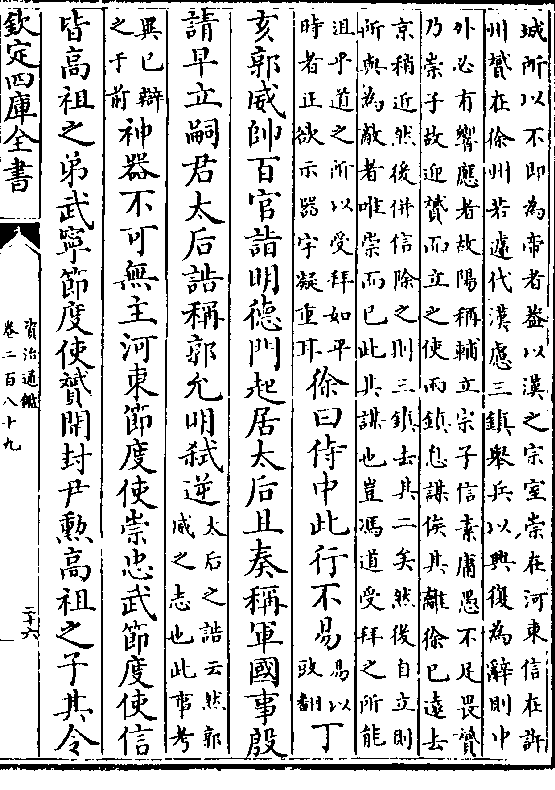 城所以不即為帝者蓋以漢之宗室崇在河東信在許
州贇在徐州若遽代漢慮三鎮舉兵以興復為辭則中
外必有響應者故陽稱輔立宗子信素庸愚不足畏贇
乃崇子故迎贇而立之使兩鎮息謀俟其離徐已遠去
京稍近然後併信除之則三鎮去其二矣然後自立則
所與為敵者唯崇而已此其謀也豈馮道受拜之所能
沮乎道之所以受拜如平
時者正欲示器宇凝重耳
徐曰侍中此行不易
易以
豉翻
丁
亥郭威帥百官詣明德門起居太后且奏稱軍國事殷
請早立嗣君太后誥稱郭允明弑逆
太后之誥云然郭
威之志也此事考
異已辯
之于前
神器不可無主河東節度使崇忠武節度使信
皆高祖之弟武寧節度使贇開封尹勳高祖之子其令
欽定四庫全書
資治通鑑
卷二百八十九
二十六